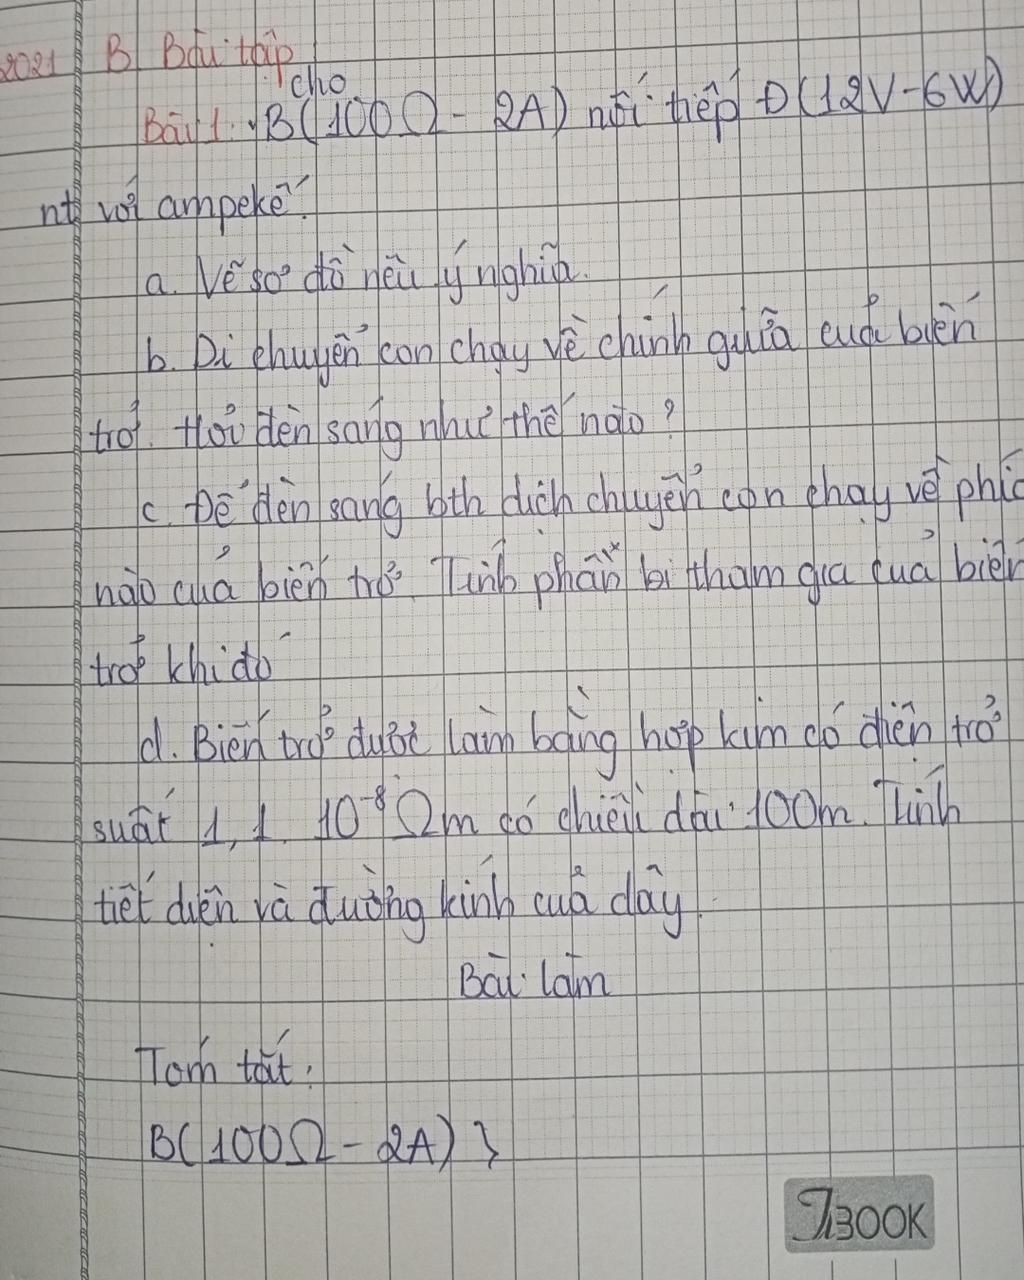 2021 B Bài tập
cho
Bài 1. B(100Ω - 2A) nối tiếp Đ(12V-6W)
nt với ampekế.
a. Vẽ sơ đồ nêu ý nghĩa.
b. Di chuyển con chạy về chính giữa của biến
trở. Hỏi đèn sáng như thế nào?
c. Để đèn sáng bth dịch chuyển con chạy về phía
nào của biến trở. Tính phần bị tham gia của biến
trở khi đó
d. Biến trở được làm bằng hợp kim có điện trở
suất 1,1. 10⁻⁸ Ωm có chiều dài 100m. Tính
tiết diện và đường kính của dây.
Bài làm
Tóm tắt:
B(100Ω - 2A) }
TBOOK